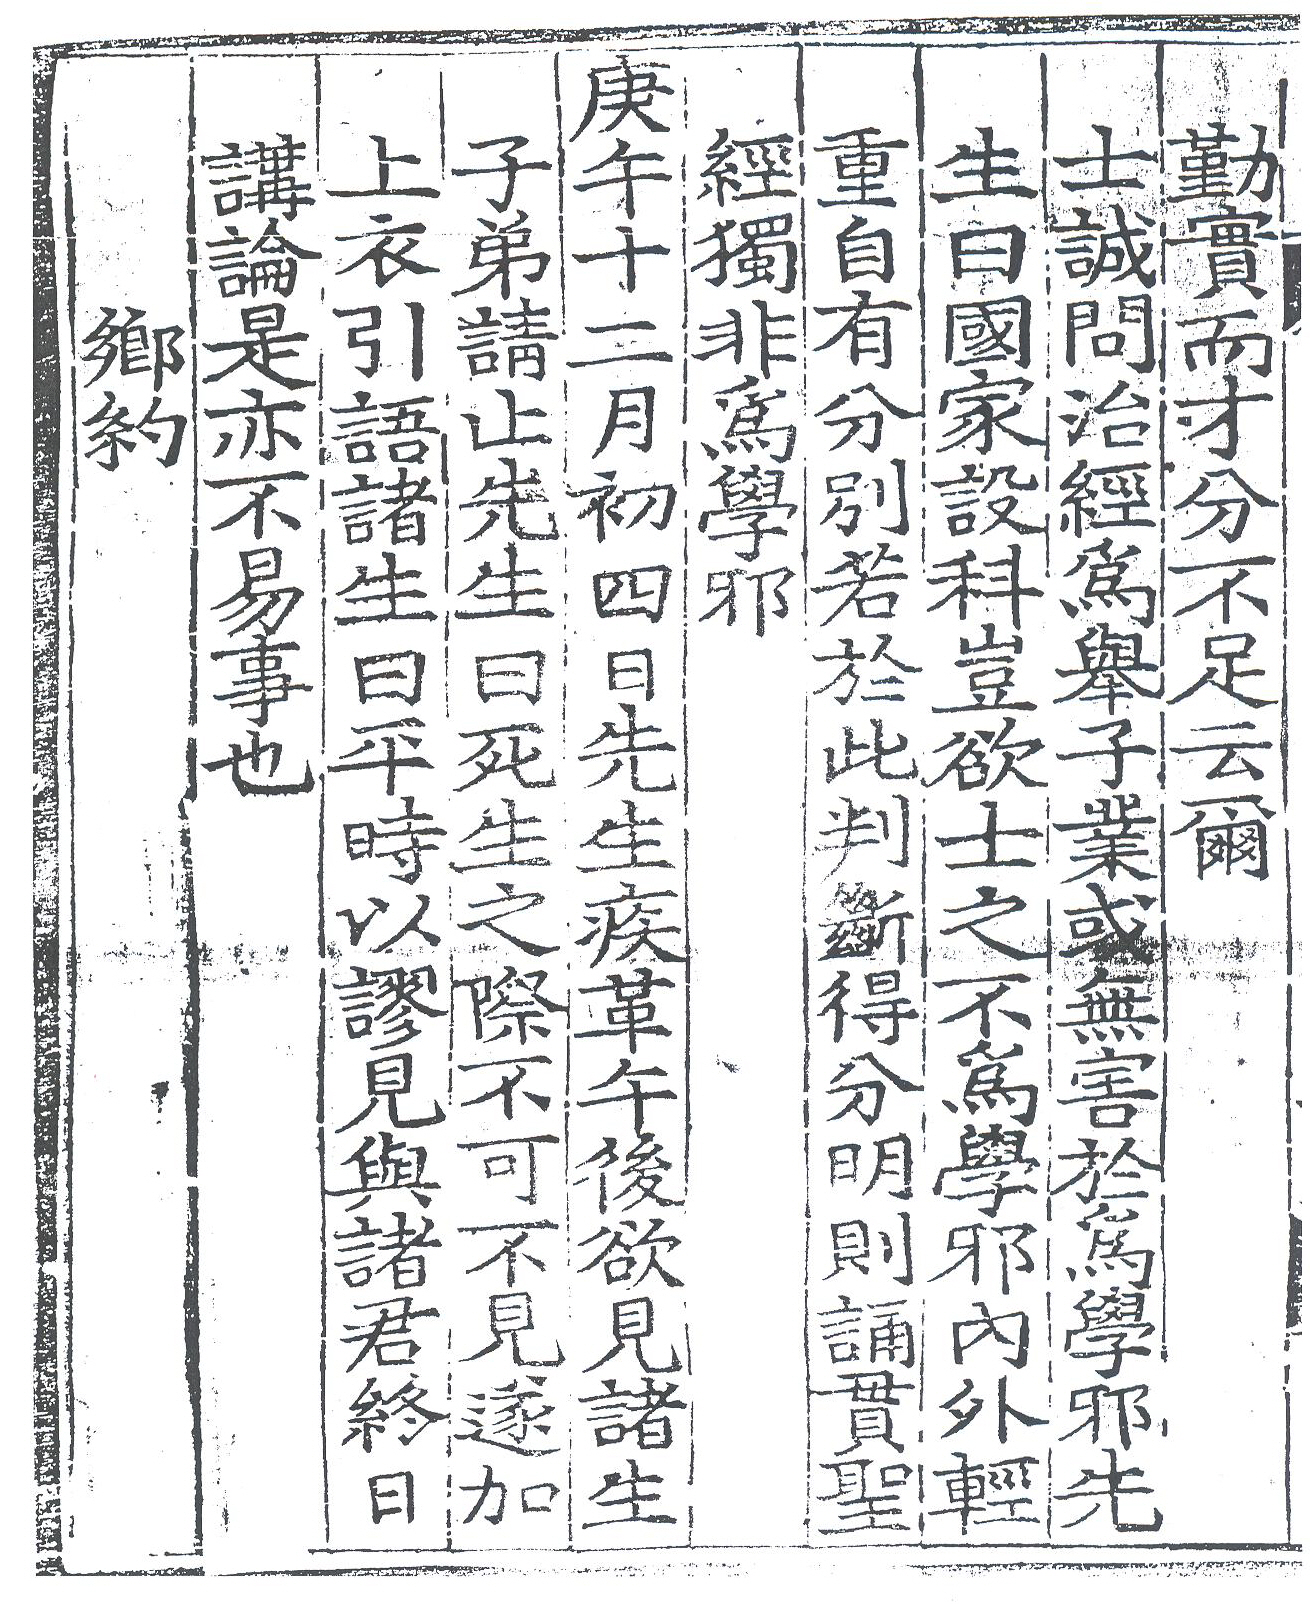 勤實而才分不足云爾
士誠問治經爲擧子業或無害於爲學邪先
生曰國家設科豈欲士之不爲學邪內外輕
重自有分別若於此判斷得分明則誦貫聖
經獨非爲學邪
庚午十二月初四日先生疾革午後欲見諸生
子弟請止先生曰死生之際不可不見遂加
上衣引語諸生曰平時以謬見與諸君終日
講論是亦不易事也
鄕約